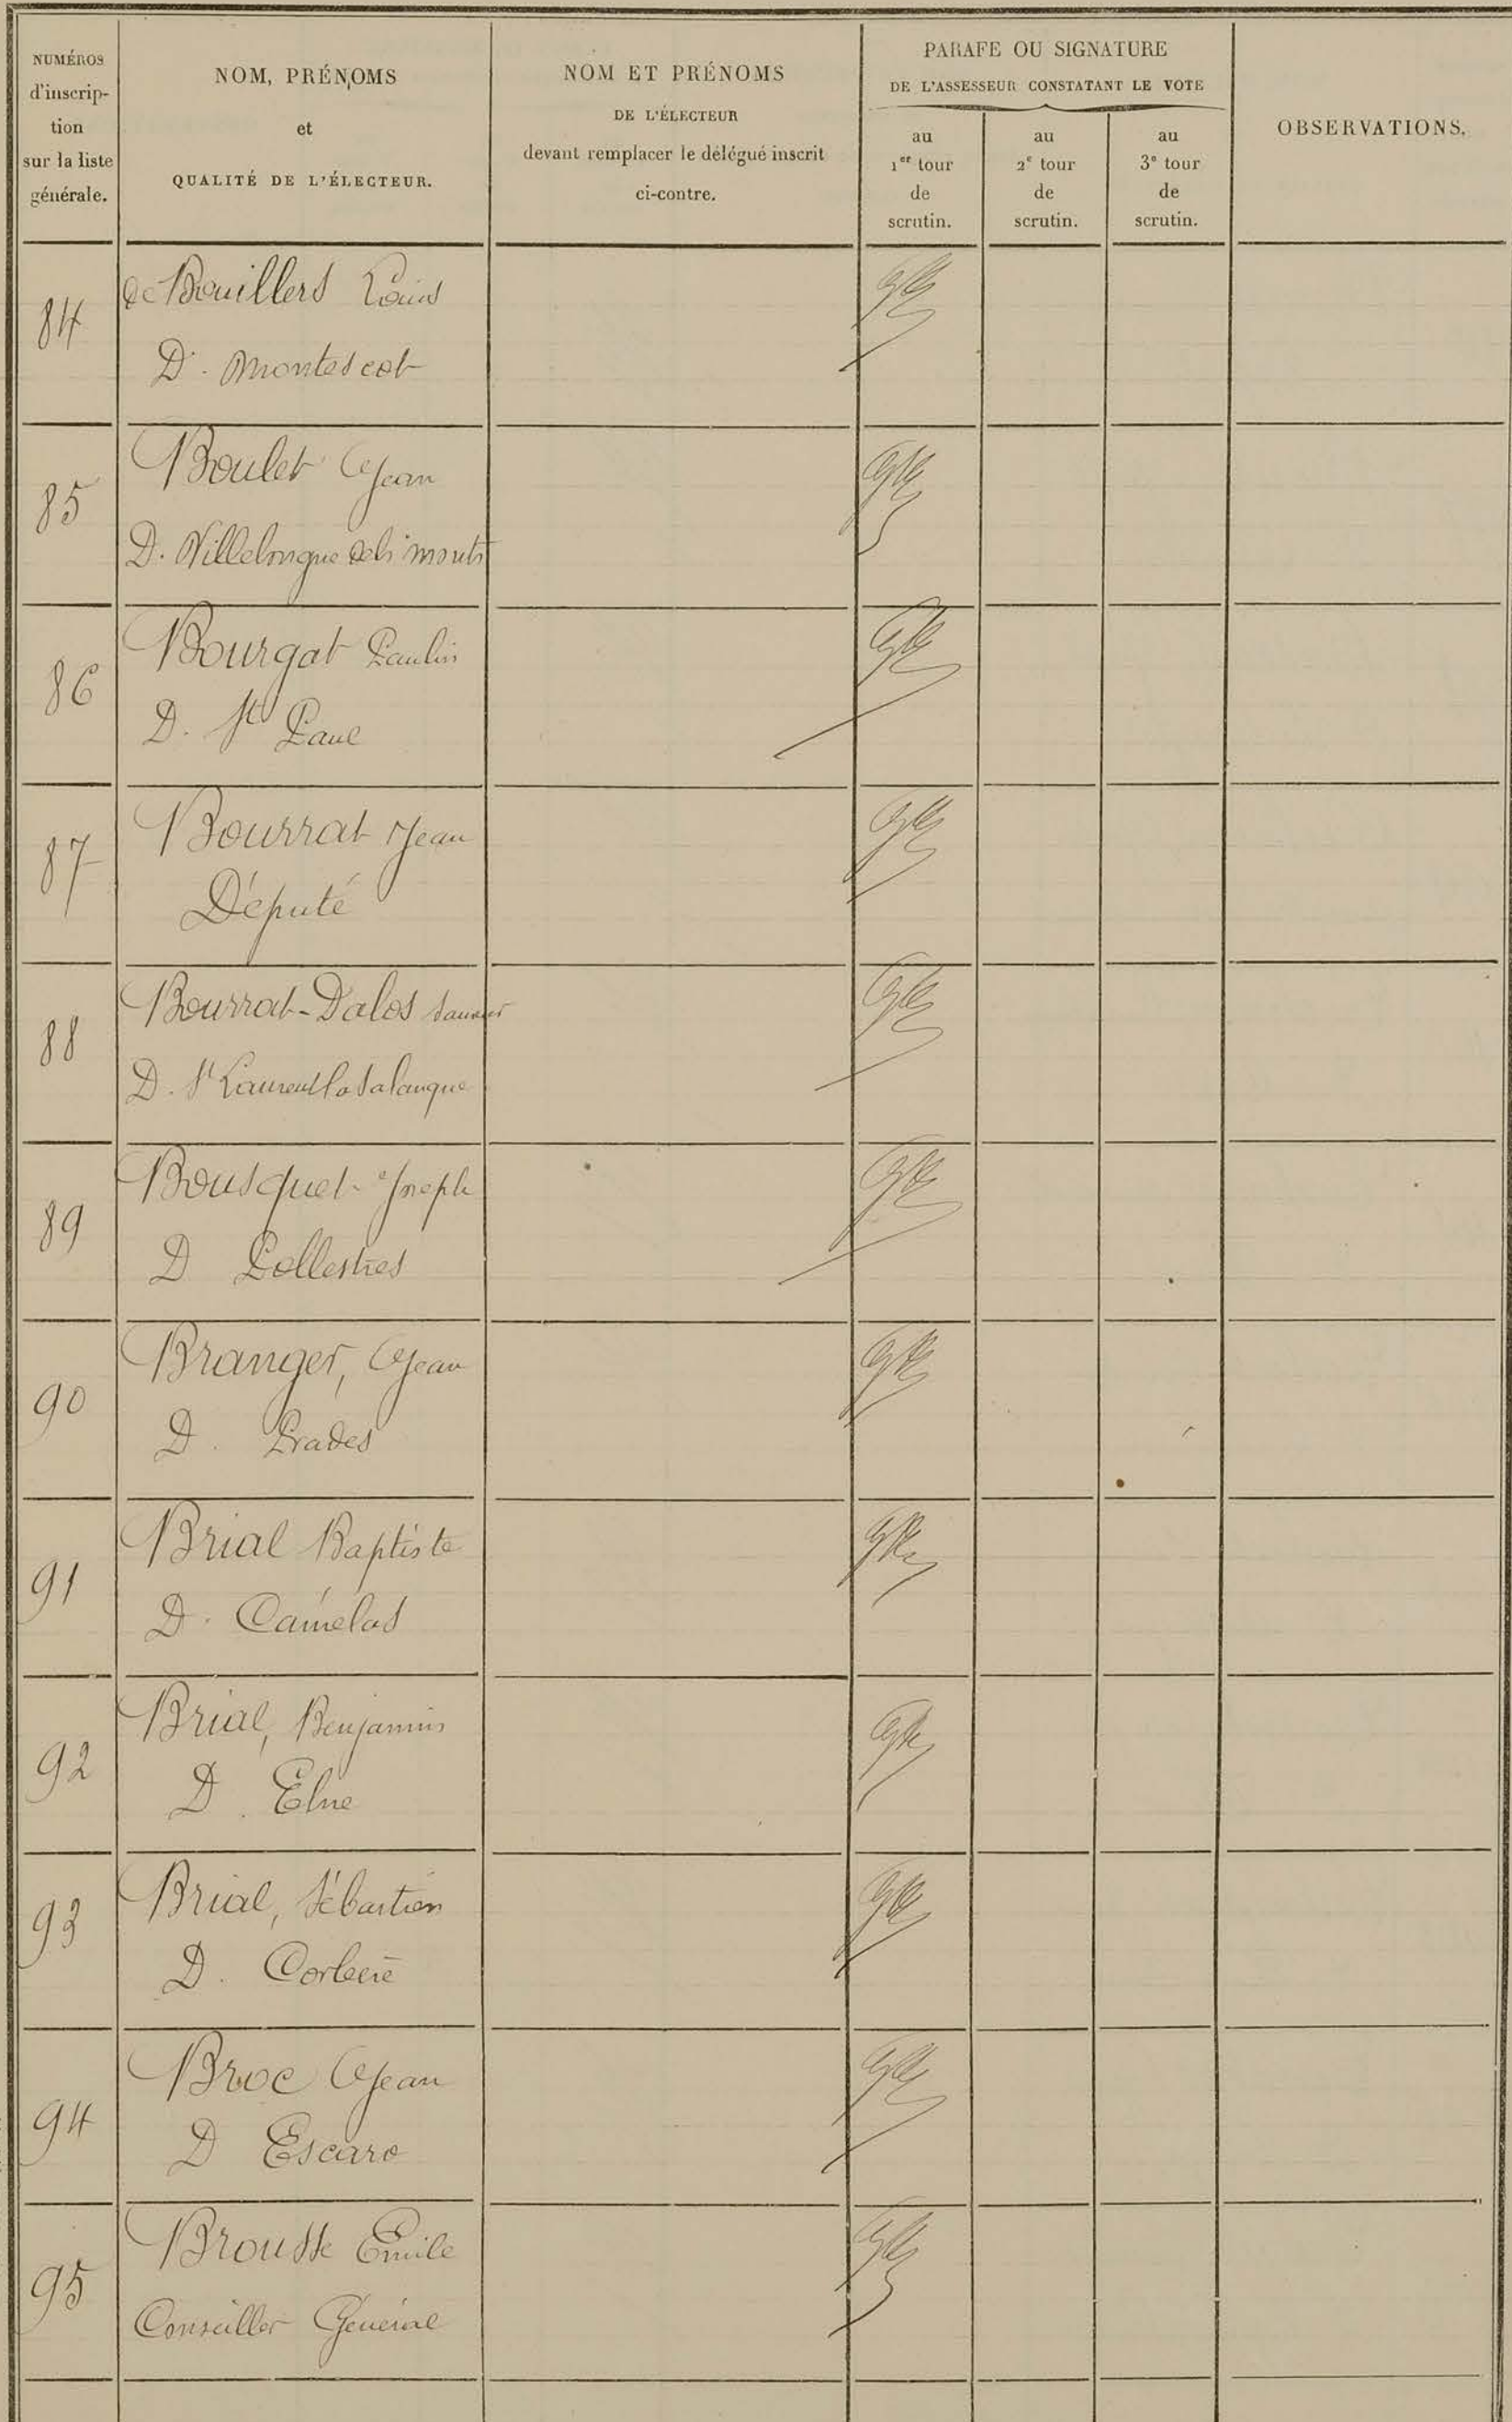 NUMÉROS
d'inscrip-
tion
sur la liste
générale.
NOM, PRÉNOMS
et
QUALITÉ DE L'ÉLECTEUR.
NOM ET PRÉNOMS
DE L'ÉLECTEUR
devant remplacer le délégué inscrit
ci-contre.
PARAFE OU SIGNATURE
DE L'ASSESSEUR CONSTATANT LE VOTE
au
1er tour
de
scrutin.
au
2e tour
de
scrutin.
au
3e tour
de
scrutin.
OBSERVATIONS.
84
de Bouillers Louis
D. Montescot
85
Boulet Jean
D. Villelongue dels monts
86
Bourgat Paulin
D. St Paul
87
Bourrat Jean
Député
88
Bourrat-Dalos
D. St Laurent la Salanque
89
Bousquet Joseph
D Pollestres
90
Branger, Jean
D. Prades
91
Brial Baptiste
D. Camélas
92
Brial, Benjamin
D. Elne
93
Brial, Sébastien
D. Corbère
94
Broc Jean
D Escaro
95
Brousse Emile
Conseiller Général